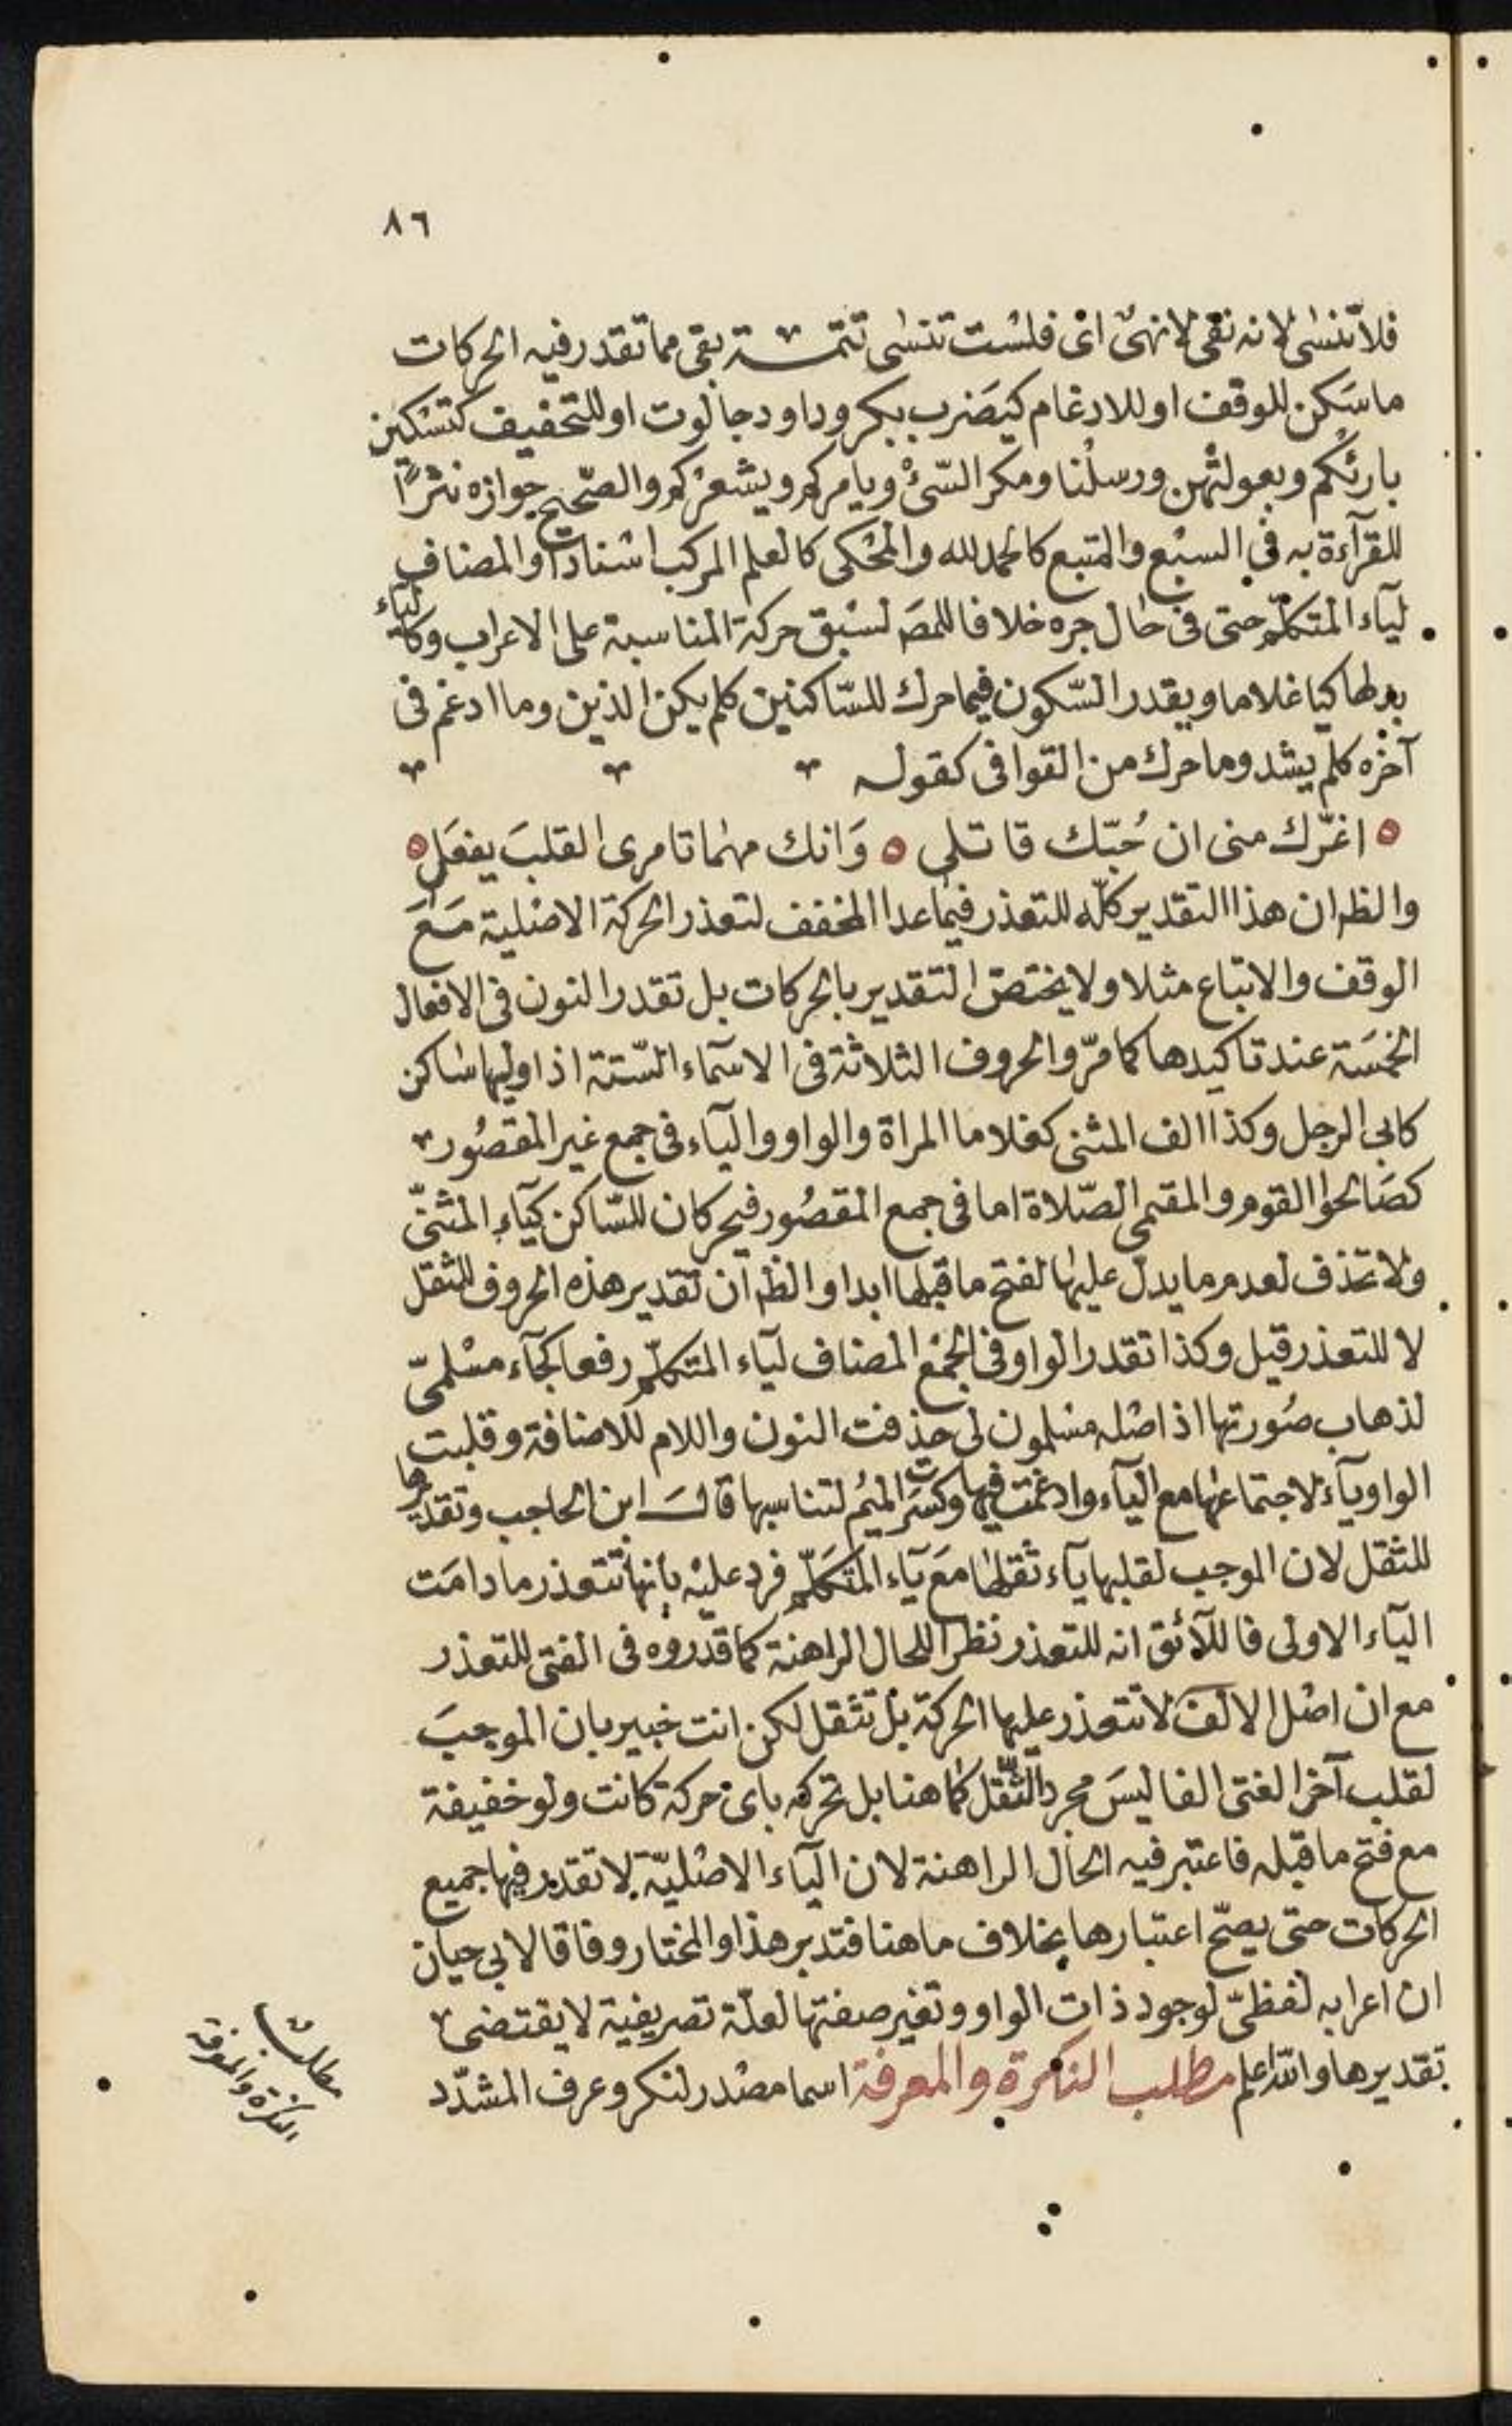 ٨٦
فلا تنسى لانه نفى لا نهى اى فلست تنسى تتمـــة بقى مما تقدر فيه الحركات
ما سكن للوقف او للادغام كيضرب ببكر وداود جالوت او للتخفيف كتسكين
بارئكم وبعولتهن ورسلنا ومكر السئ ويامركم ويشعركم والصحيح جوازه نثرًا
للقرآءة به فى السبع والمتبع كالحمد لله والمحكى كالعلم المركب اسنادا والمضاف
ليآء المتكلم حتى فى حال جره خلافا للمص لسبق حركة المناسبة على الاعراب وكاليآء
بدلها كيا غلاما ويقدر السّكون فيما حرك للسّاكنين كلم يكن الذين وما ادغم فى
آخره كلم يشد وما حرك من القوافى كقوله
اغرّك منى ان حُبّك قاتلى ه وَانك مهما تامرى القلبَ يفعَل ه
والظ ان هذا التقدير كلّه للتعذر فيما عدا المخفف لتعذر الحركة الاصلية مَعَ
الوقف والاتباع مثلا ولا يختص التقدير بالحركات بل تقدر النون فى الافعال
الخمسَة عند تاكيدها كما مرّ والحروف الثلاثة فى الاسمآء السّتة اذا وليها ساكن
كابى الرجل وكذا الف المثنى كغلاما المراة والواو واليآء فى جمع غير المقصُور
كصَالحوا القوم والمقيمى الصّلاة اما فى جمع المقصُور فيحركان للسّاكن كيآء المثنّى
ولا تحذف لعدم ما يدل عليها لفتح ما قبلها ابدا والظ ان تقدير هذه الحروف للثقل
لا للتعذر قيل وكذا تقدر الواو فى الجمع المضاف ليآء المتكلّم رفعا كجآء مسْلمىّ
لذهاب صُورتها اذ اصله مسْلمون لى حذفت النون واللام للاضافة وقلبت
الواو يآء لاجتماعها مع اليآء وادغمت فيها وكسرت الميم لتناسبها قالـ ابن الحاجب وتقديرها
للثقل لان الموجب لقلبها يآء ثقلها مَعَ يآء المتكلّم فرد عليْه بانها تتعذر ما دامَت
اليآء الاولى فاللآئق انه للتعذر نظرا للحال الراهنة كما قدّروه فى الفتى للتعذر
مع ان اصْل الالف لا تتعذر عليها الحركة بل تثقل لكن انت خبير بان الموجبَ
لقلب آخر الفتى الفا ليسَ مجرد الثّقل كما هنا بل تحركه باى حركة كانت ولو خفيفة
مع فتح ما قبله فاعتبر فيه الحال الراهنة لان اليآء الاصْليّة لا تقدر فيها جميع
الحركات حتى يصحّ اعتبارها بخلاف ما هنا فتدبر هذا والمختار وفاقا لابى حيان
ان اعرابه لفظىّ لوجود ذات الواو وتغير صفتها لعلّة تصريفية لا يقتضى
تقديرها والله اعلم مطلب النكرة والمعرفة اسما مصْدر لنكر وعرف المشدّد
مطلب
النكرة والمعرفة